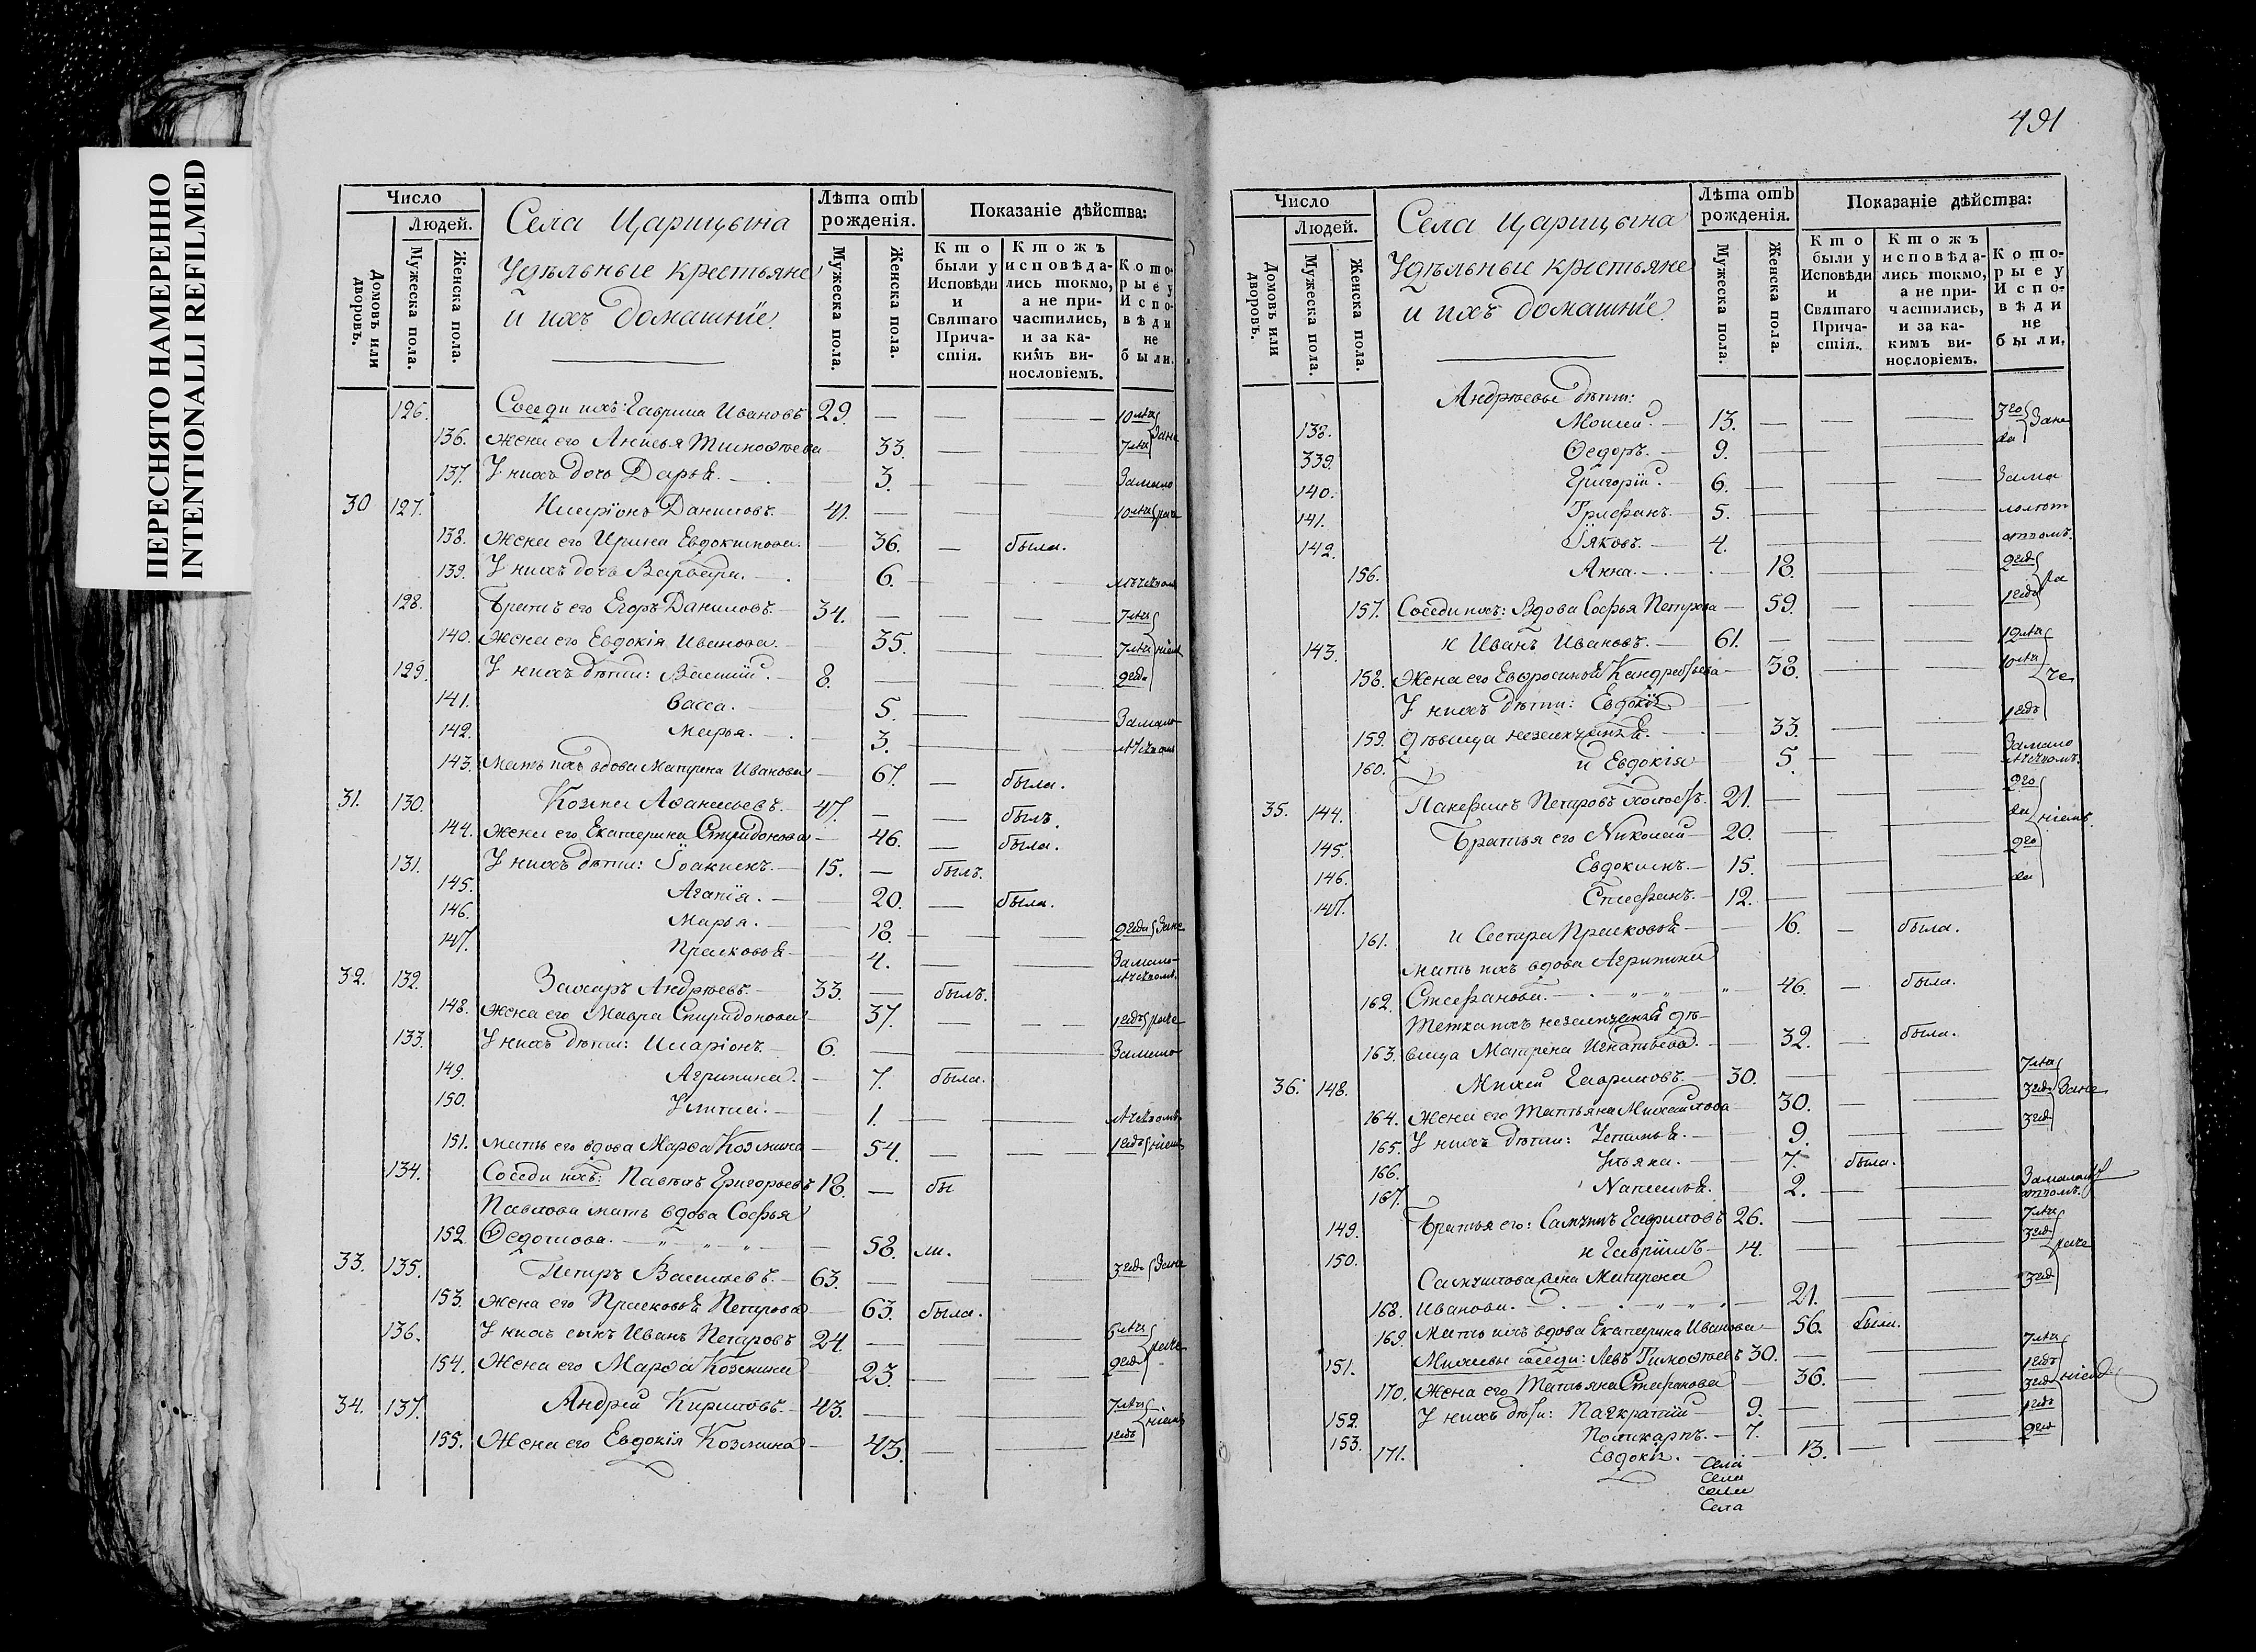 ПЕРЕСНЯТО НАМЕРЕННО
INTENTIONALLI REFILMED
Число
Людей.
Домовъ или дворовъ.
Мужеска пола.
Женска пола.
Села Царицына
Удѣльные крестьяне
и ихъ домашніе.
Лѣта отъ рожденія.
Мужеска пола.
Женска пола.
Показаніе дѣйства:
Кто были у Исповѣди и Святаго Прича-стія.
Ктожъ исповѣда-лись токмо, а не при-частились, и за ка-кимъ ви-нословіемъ.
Кото-рые у Испо-вѣди не были.
126. Соседи ихъ: Гаврила Ивановъ 29. — — 10 лѣтъ
136. Жена его Анисья Тимофѣева 33. — — 7 лѣтъ
137. У нихъ дочь Дарья. 3. — — За мало
30 127. Иларіонъ Даниловъ. 41. — — 10 лѣтъ
138. Жена его Ирина Евдокимова. — 36. — была.
139. У нихъ дочь Варвара. 6. — —
128. Братъ его Егоръ Даниловъ. 34. — — 7 лѣтъ
140. Жена его Евдокія Иванова. 35. — — 7 лѣтъ
129. У нихъ дѣти: Василій. 8. — — 2 года
141. Васса. 5. — — За мало
142. Марья. 3. — —
143. Мать ихъ вдова Матрена Иванова — 67. — была.
31. 130. Козма Афанасьевъ. 47. — — былъ.
144. Жена его Екатерина Спиридонова — 46. — была.
131. У нихъ дѣти: Іоакимъ. — 15. — былъ.
145. Агапія. — 20. — была.
146. Марья. — 18. — — 2 года
147. Прасковья — 4. — — За мало
32. 132. Захаръ Андрѣевъ. — 33. — былъ.
148. Жена его Мавра Спиридонова — 37. — — 1 годъ
133. У нихъ дѣти: Иларіонъ. — 6. — — За мало
149. Агрипина. — 7. была.
150. Улита. — 1. — —
151. Мать его вдова Марфа Козмина — 54. — — 1 годъ
134. Соседи ихъ: Павелъ Григорьевъ 18. — бы
Павлова мать вдова Софья
152. Федотова. — 58. ли.
33. 135. Петръ Васильевъ. — 63. — — 3 года
153. Жена его Прасковья Петрова — 63. была.
136. У нихъ сынъ Иванъ Петровъ 24. — — 6 лѣтъ
154. Жена его Марфа Козмина 23. — — 2 года
34. 137. Андрей Кириловъ. — 43. — — 7 лѣтъ
155. Жена его Евдокія Козмина — 43. — — 1 годъ
491
Число
Людей.
Домовъ или дворовъ.
Мужеска пола.
Женска пола.
Села Царицына
Удѣльные крестьяне
и ихъ домашніе.
Лѣта отъ рожденія.
Мужеска пола.
Женска пола.
Показаніе дѣйства:
Кто были у Исповѣди и Святаго Прича-стія.
Ктожъ исповѣда-лись токмо, а не при-частились, и за ка-кимъ ви-нословіемъ.
Кото-рые у Испо-вѣди не были.
Андрѣевы дѣти:
138. Моисей. — 13. — —
339. Федоръ. — 9. — —
140. Григорій. — 6. — —
141. — 5. — —
142. Іяковъ. — 4. — —
156. Анна. — 18. — — 2 года
157. Соседи ихъ: Вдова Софья Петрова — 59. — — 1 годъ
143. и Иванъ Ивановъ. — 61. — — 12 лѣтъ
158. Жена его Евфросинья — 38. — — 10 лѣтъ
У нихъ дѣти: Евдокія
159. дѣвица — 33. — — 1 годъ
160. и Евдокія 5. — — За мало
35. 144. Петровъ 21. — —
145. Братья его Николай — 20. — —
146. Евдокимъ. — 15. — —
147. Стефанъ. — 12. — —
161. и Сестра Прасковья — 16. — была.
Мать ихъ вдова Агрипина
162. Стефанова. — 46. — была.
Тетка ихъ дѣ-
163. вица Матрена Игнатьева. — 32. — была.
36. 148. Михей Гавриловъ. — 30. — — 7 лѣтъ
164. Жена его Татьяна Михайлова — 30. — — 3 года
165. У нихъ дѣти: — 9. — — 3 года
166. Ульяна. — 7. была.
167. Наталья. — 2. — —
149. Братья его: Гавриловъ 26. — — 7 лѣтъ
150. и Гавріилъ — 14. — — 3 года
жена Матрена
168. Иванова. — 21. — — 3 года
169. Мать ихъ вдова Екатерина Иванова — 56. была.
151. Михеевы соседи: Левъ Тимофѣевъ 30. — — 7 лѣтъ
170. Жена его Татьяна Стефанова — 36. — — 1 годъ
152. У нихъ дѣти: Панкратій — 9. — — 3 года
153. Поликарпъ. — 7. — — 1 годъ
171. Евдокія. — 13. — — 2 года
Села
Села
Села
Села